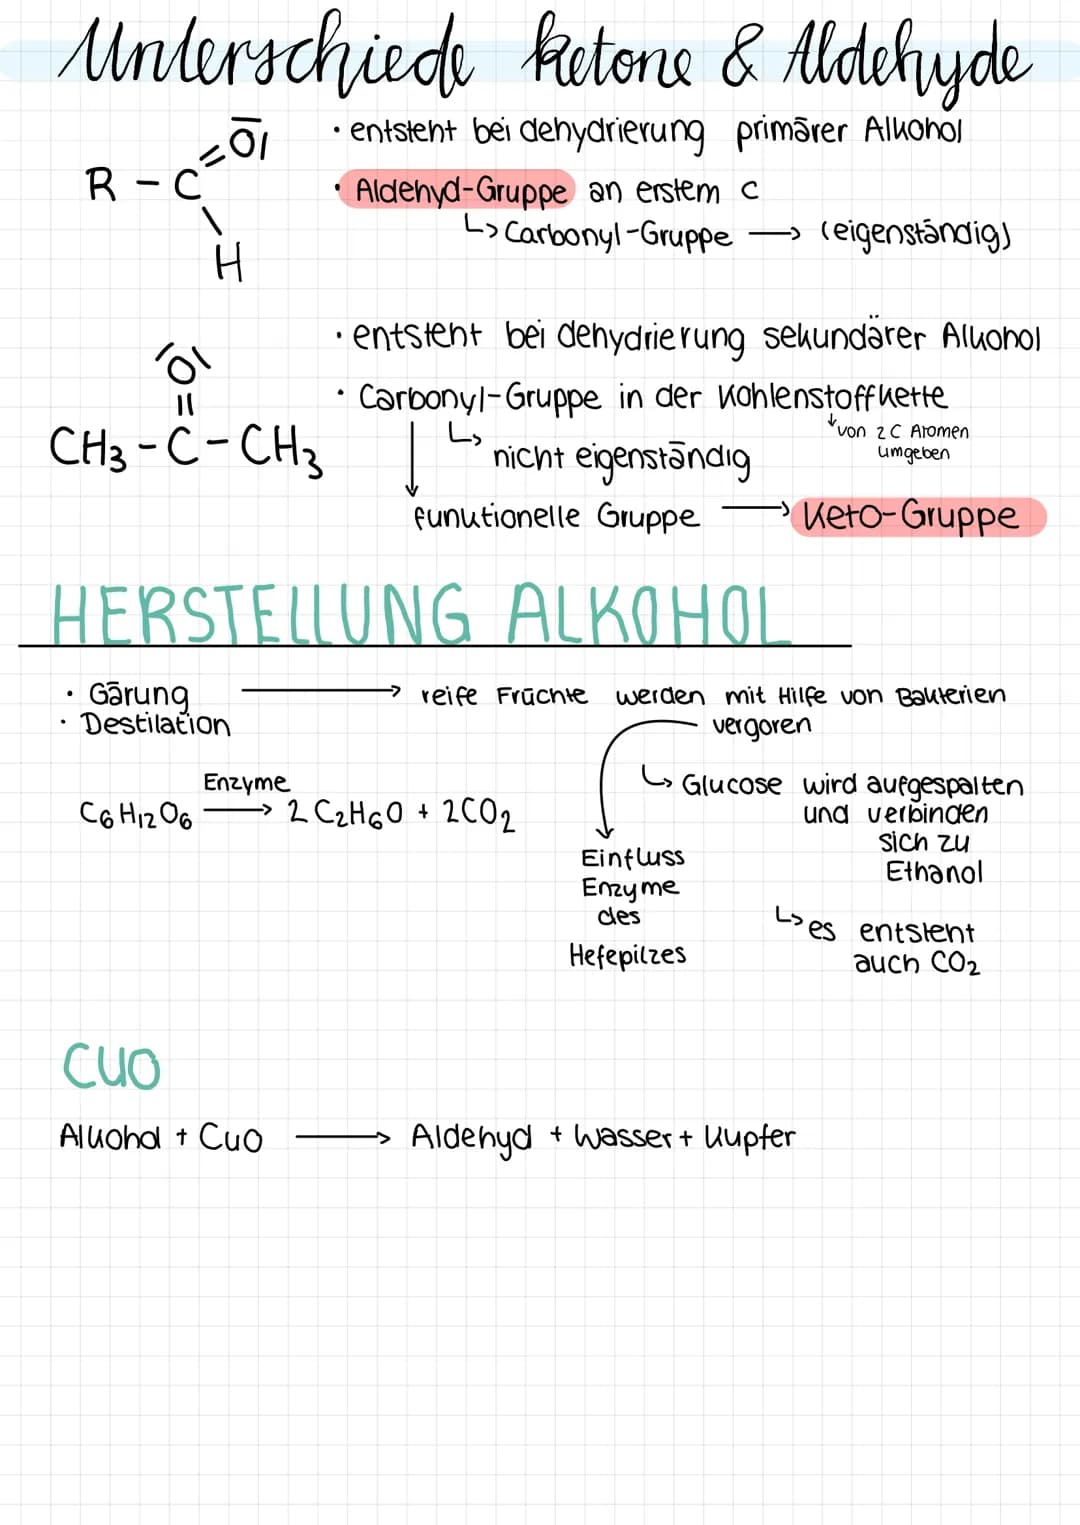 Unterschiede ketone & Aldehyde
R - C = O| \ H
• entsteht bei dehydrierung primärer Alkohol
• Aldehyd-Gruppe an erstem C
↳ Carbonyl-Gruppe → (eigenständig)
• entsteht bei dehydrierung sekundärer Alkohol
|O|
||
CH3 - C - CH3
• Carbonyl-Gruppe in der Kohlenstoffkette
↓ von 2 C Atomen
umgeben
↳ nicht eigenständig
↓ funktionelle Gruppe → Keto-Gruppe
HERSTELLUNG ALKOHOL
• Gärung → reife Früchte werden mit Hilfe von Bakterien
vergoren
• Destilation
Enzyme
C6H12O6 → 2 C2H6O + 2CO2
↳ Glucose wird aufgespalten
und verbinden
sich zu
Ethanol
Einfluss
Enzyme
des
Hefepilzes
↳ es entsteht
auch CO2
CUO
Alkohol + CuO → Aldehyd + Wasser + Kupfer